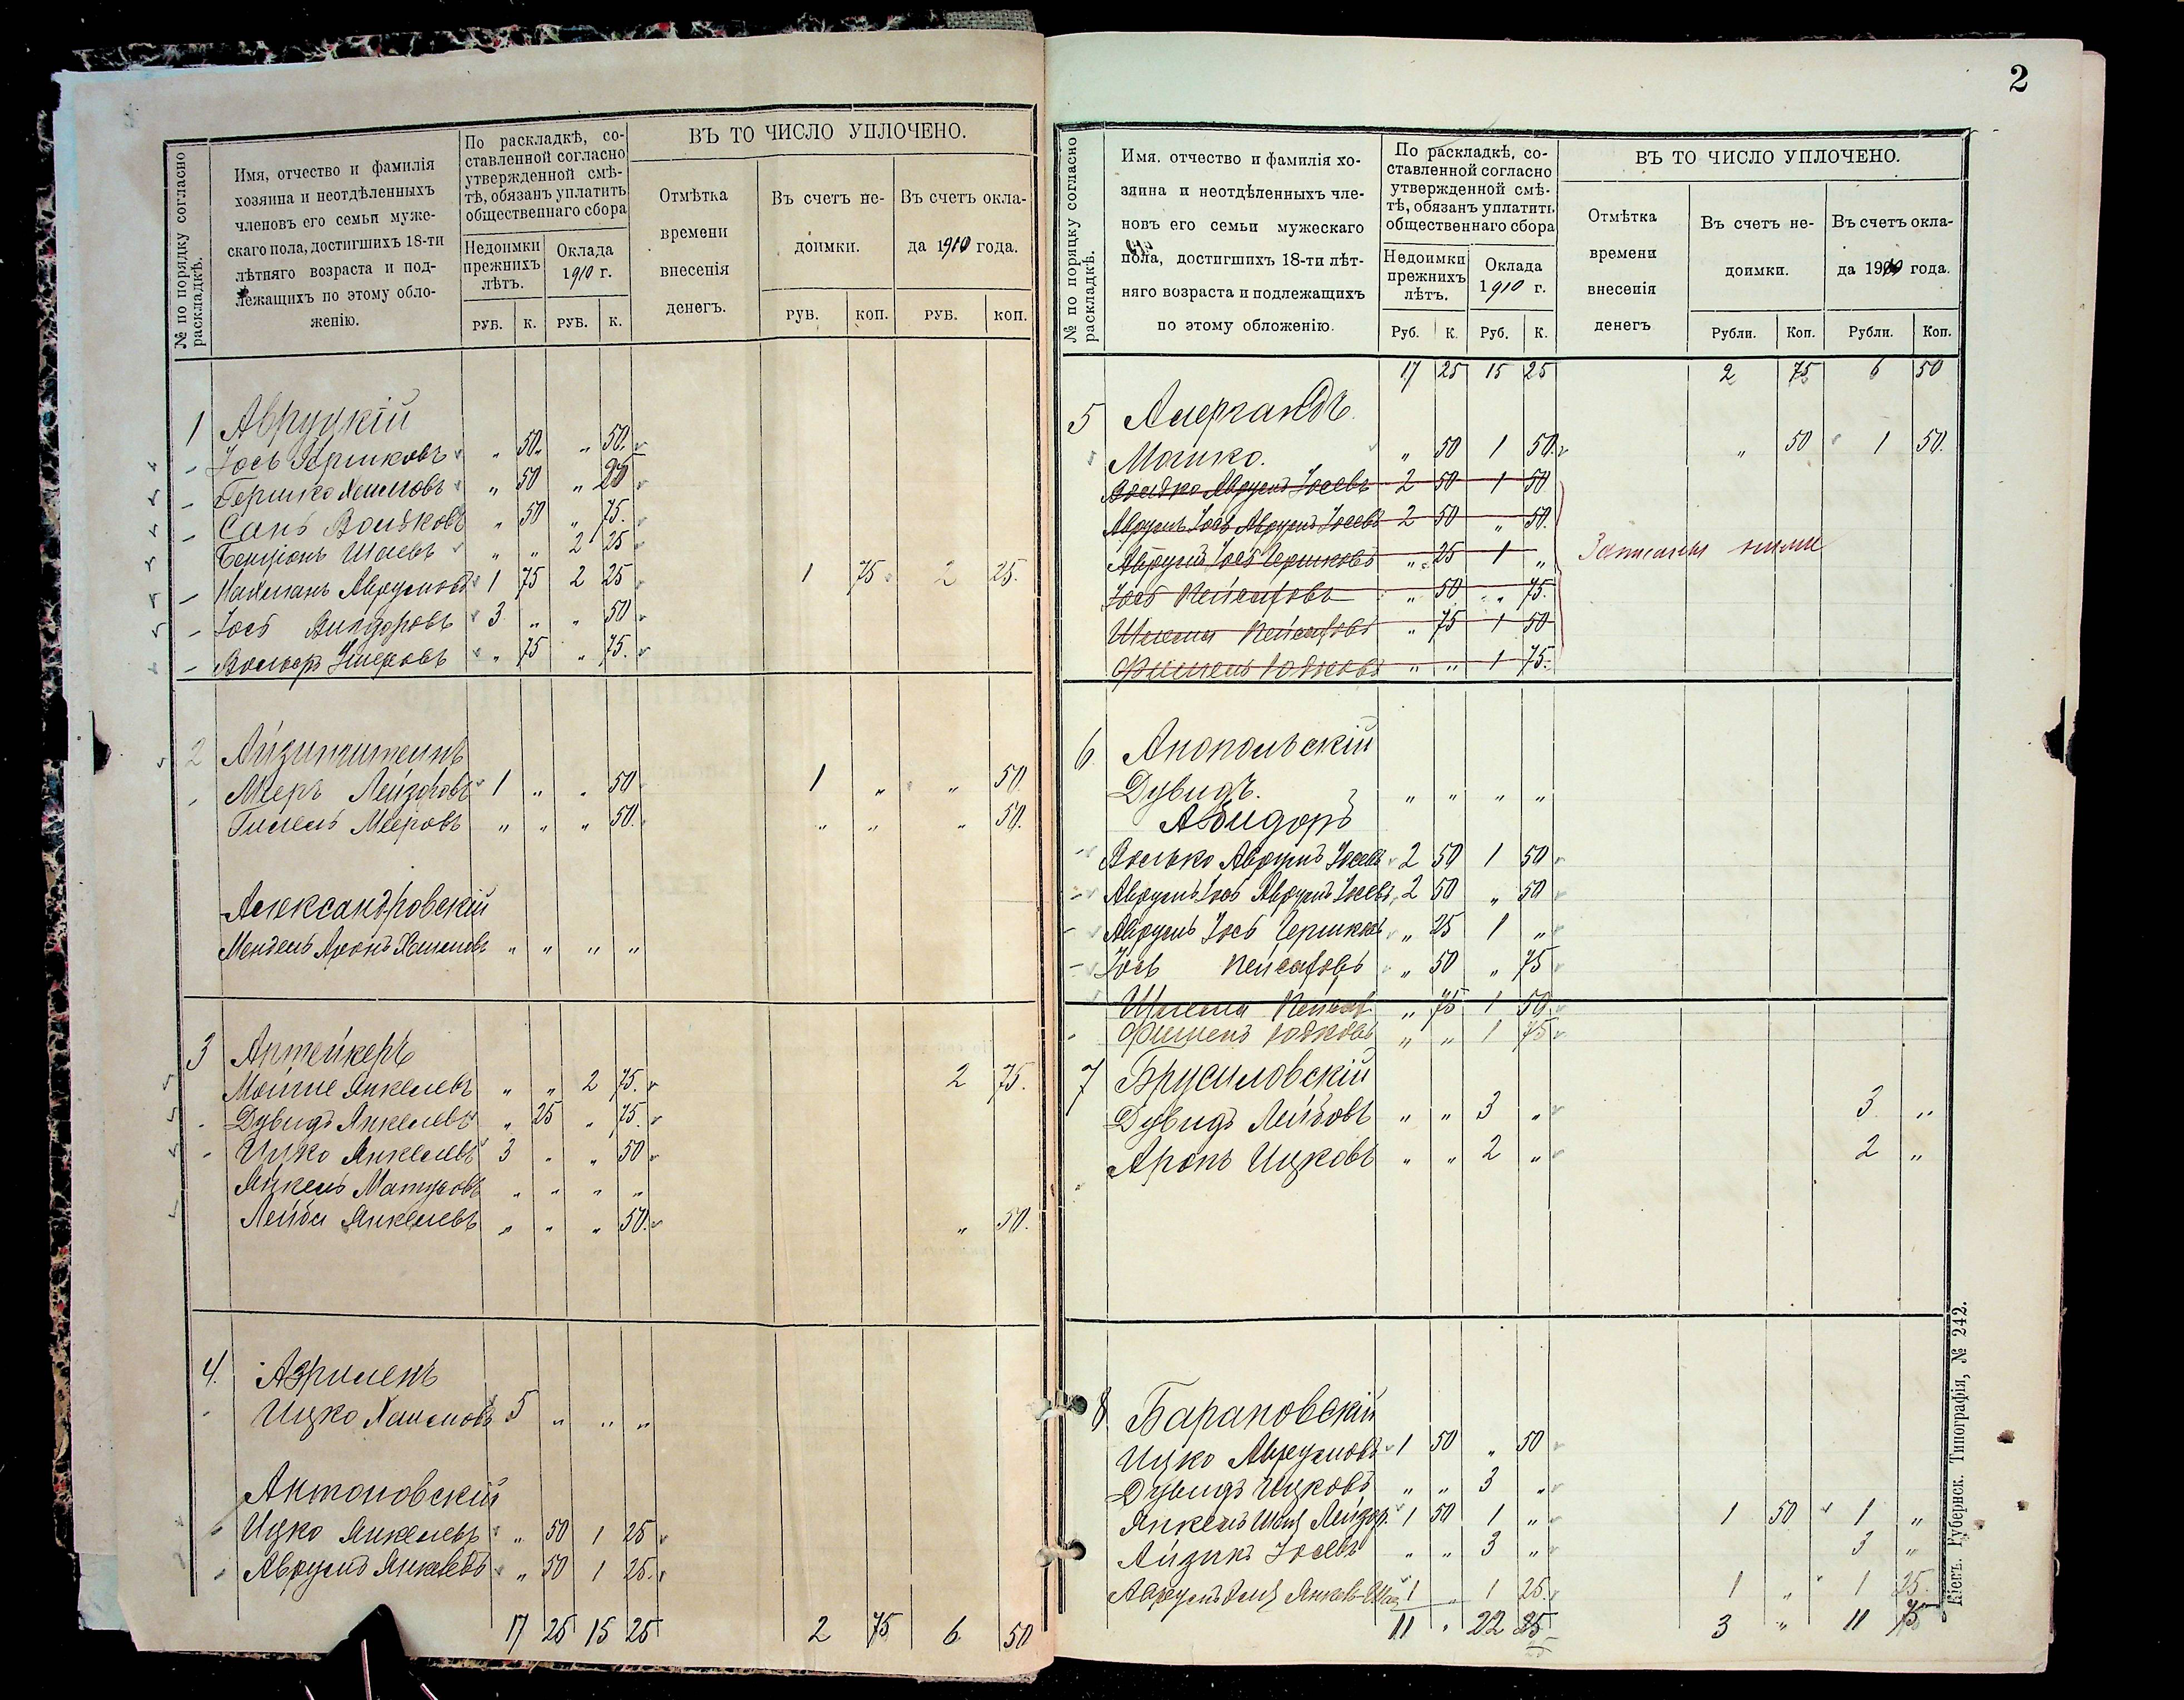 № по порядку согласно раскладкѣ.
Имя, отчество и фамилія
хозяина и неотдѣленныхъ
членовъ его семьи муже-
скаго пола, достигшихъ 18-ти
лѣтняго возраста и под-
лежащихъ по этому обло-
женію.
По раскладкѣ, со-
ставленной согласно
утвержденной смѣ-
тѣ, обязанъ уплатить
общественнаго сбора
Недоимки
прежнихъ
лѣтъ.
Оклада
1910 г.
РУБ. К. РУБ. К.
ВЪ ТО ЧИСЛО УПЛОЧЕНО.
Отмѣтка
времени
внесенія
денегъ.
Въ счетъ не-
доимки.
Въ счетъ окла-
да 1910 года.
РУБ. КОП. РУБ. КОП.
1 Авруцкій
Іось Гершковъ „ 50 „ 50.
Гершко Хаимовъ „ 50 „
Сань Вольковъ „ 50 „ 75.
Бенціонъ Шаевъ „ „ 2 25
Нахманъ Аврумовъ 1 75 2 25 1 75 2 25.
Іось Вигдоровъ 3 „ „ 50
„ 75 „ 75.
2 Айзинштейнъ
Меръ Лейзоровъ 1 „ „ 50 1 „ „ 50
Гилель Мееровъ „ „ „ 50. „ „ „ 50.
Александровскій
Мендель Аронъ Хаимовъ „ „ „ „
3 Аптейкеръ
Мойше Янкелевъ „ „ 2 75. 2 75.
Дувидъ Янкелевъ „ 25 „ 75.
Ицко Янкелевъ 3 „ „ 50
Янкель „ „ „ „
Лейба Янкелевъ „ „ „ 50. „ 50.
4. Азрилекъ
Ицко Хаимовъ 5 „ „ „
Антоновскій
Ицко Янкелевъ „ 50 1 25
Аврумъ Янкелевъ „ 50 1 25.
17 25 15 25 2 75 6 50
2
№ по порядку согласно раскладкѣ.
Имя. отчество и фамилія хо-
зяина и неотдѣленныхъ чле-
новъ его семьи мужескаго
пола, достигшихъ 18-ти лѣт-
няго возраста и подлежащихъ
по этому обложенію.
По раскладкѣ, со-
ставленной согласно
утвержденной смѣ-
тѣ, обязанъ уплатить
общественнаго сбора
Недоимки
прежнихъ
лѣтъ.
Оклада
1910 г.
Руб. К. Руб. К.
ВЪ ТО ЧИСЛО УПЛОЧЕНО.
Отмѣтка
времени
внесенія
денегъ
Въ счетъ не-
доимки.
Въ счетъ окла-
да 1910 года.
Рубли. Коп. Рубли. Коп.
17 25 15 25 2 75 6 50
5
Мошко. „ 50 1 50. „ 50 1 50.
Волько Аврумъ Іосевъ 2 50 1 50
Аврумъ Іось Аврумъ Іосевъ 2 50 „ 50.
Аврумъ Іось Гершковъ „ 25 1 „
Іось Пейсаховъ „ 50 „ 75.
Шлема Пейсаховъ „ 75 1 50
Фишель Юдковъ „ „ 1 75.
Записаны ниже
6 Анопольскій
Дувидъ. „ „ „ „
Авидоръ
Волько Аврумъ Іосевъ 2 50 1 50
Аврумъ Іось Аврумъ Іосевъ 2 50 „ 50
Аврумъ Іось Гершковъ „ 25 1 „
Іось Пейсаховъ „ 50 „ 75
Шлема Пейсах „ 75 1 50
Фишель Юдковъ „ „ 1 75
7 Брусиловскій
Дувидъ Лейбовъ „ „ 3 „ 3 „
Аронъ Ицковъ „ „ 2 „ 2 „
8 Барановскій
Ицко Аврумовъ 1 50 „ 50
Дувидъ Ицковъ „ „ 3 „
Янкель 1 50 1 „ 1 50 1 „
Айзикъ Іосевъ „ „ 3 „ 3 „
Аврумъ 1 „ 1 25. 1 „ 1 25.
11 „ 22 3 „ 11 75
Кіевъ. Губернск. Типографія, № 242.